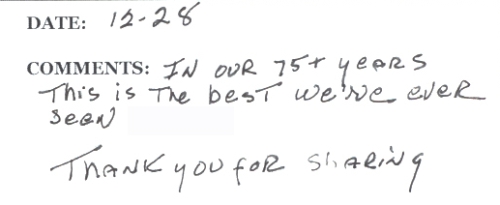 DATE: 12-28
COMMENTS: IN OUR 75+ years
This is The best we've ever
seen
Thank you for sharing